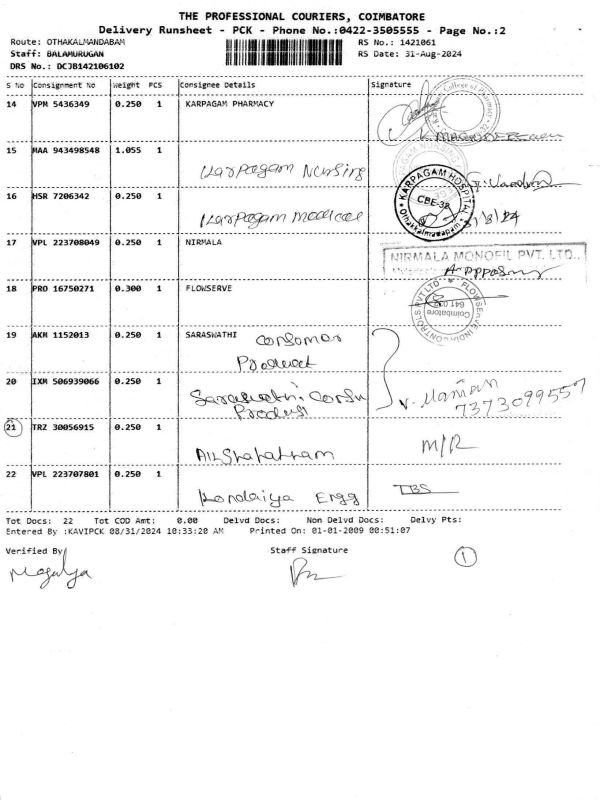 THE PROFESSIONAL COURIERS, COIMBATORE
Delivery Runsheet - PCK - Phone No.:0422-3505555 - Page No.:2
Route: OTHAKALMANDABAM RS No.: 1421061
Staff: BALAMURUGAN RS Date: 31-Aug-2024
DRS No.: DCJB142106102
S No Consignment No Weight PCS Consignee Details Signature
14 VPM 5436349 0.250 1 KARPAGAM PHARMACY
College of Pharmacy
15 MAA 943498548 1.055 1
Karpagam Nursing
16 HSR 7206342 0.250 1
Karpagam medical
KARPAGAM HOSPITAL
CBE-32
Othakkalmandapam
31/8/24
17 VPL 223708049 0.250 1 NIRMALA
NIRMALA MONOFIL PVT. LTD.,
18 PRO 16750271 0.300 1 FLOWSERVE
FLOWSERVE INDIA CONTROLS PVT LTD
Coimbatore
19 AKM 1152013 0.250 1 SARASWATHI Consomar
Product
20 IXM 506939066 0.250 1
Saraswathi Consu
Product
V. Manian
7373099557
21 TRZ 30056915 0.250 1
M/R
22 VPL 223707801 0.250 1
Kondaiya Engg TBS
Tot Docs: 22 Tot COD Amt: 0.00 Delvd Docs: Non Delvd Docs: Delvy Pts:
Entered By :KAVIPCK 08/31/2024 10:33:20 AM Printed On: 01-01-2009 00:51:07
Verified By Staff Signature 1